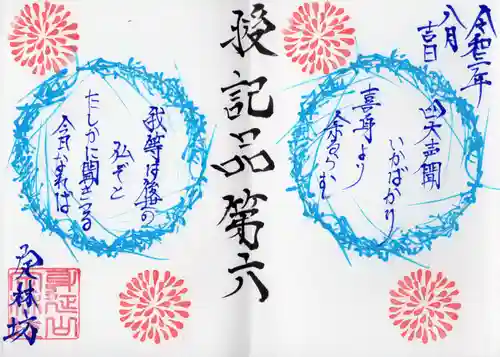 令和二年
八月
吉日
四大声聞
いかばかり
喜身より
余るらむ
授記品第六
我等は後世の
仏ぞと
たしかに聞きつる
今日なれば
覚林坊
身延山